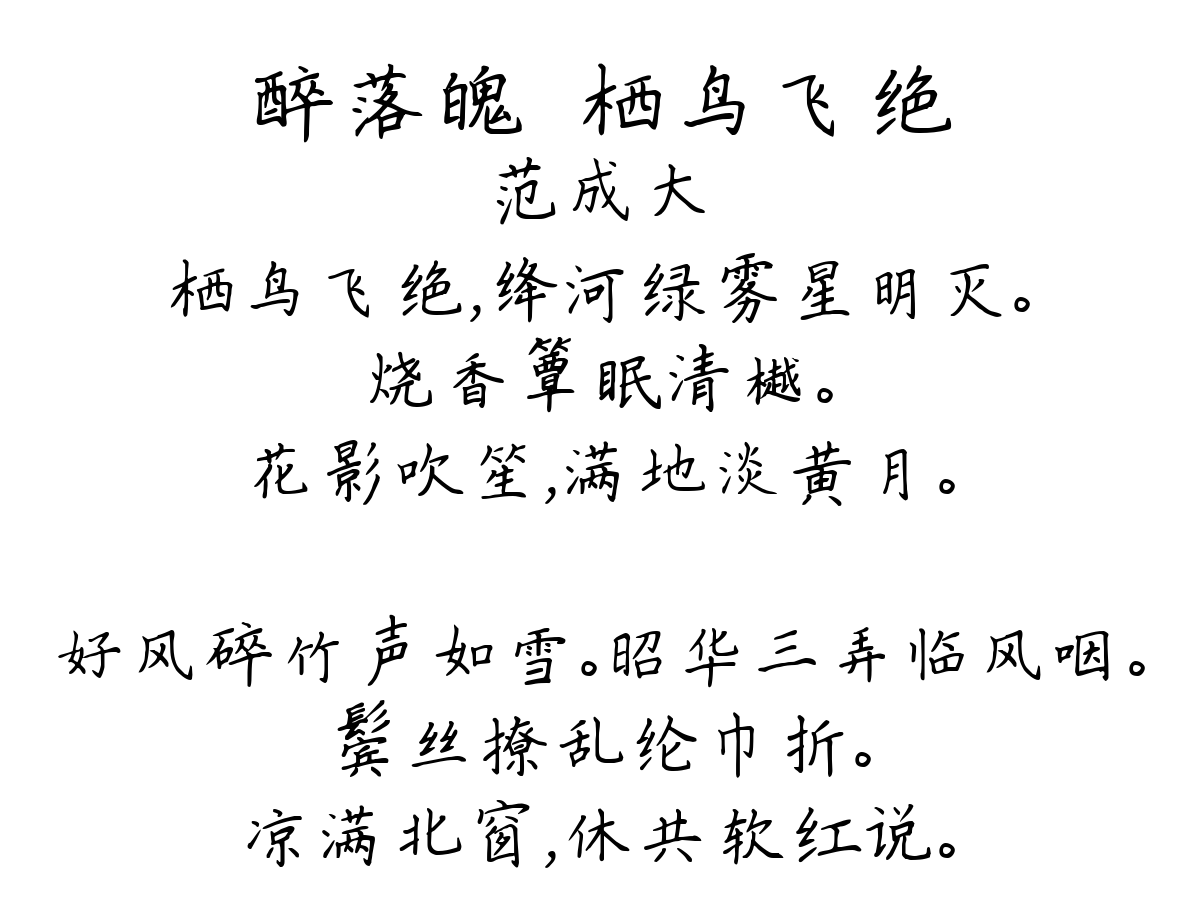 醉落魄 栖鸟飞绝
范成大
栖鸟飞绝,绛河绿雾星明灭。
烧香簟眠清樾。
花影吹笙,满地淡黄月。
好风碎竹声如雪。昭华三弄临风咽。
鬓丝撩乱纶巾折。
凉满北窗,休共软红说。